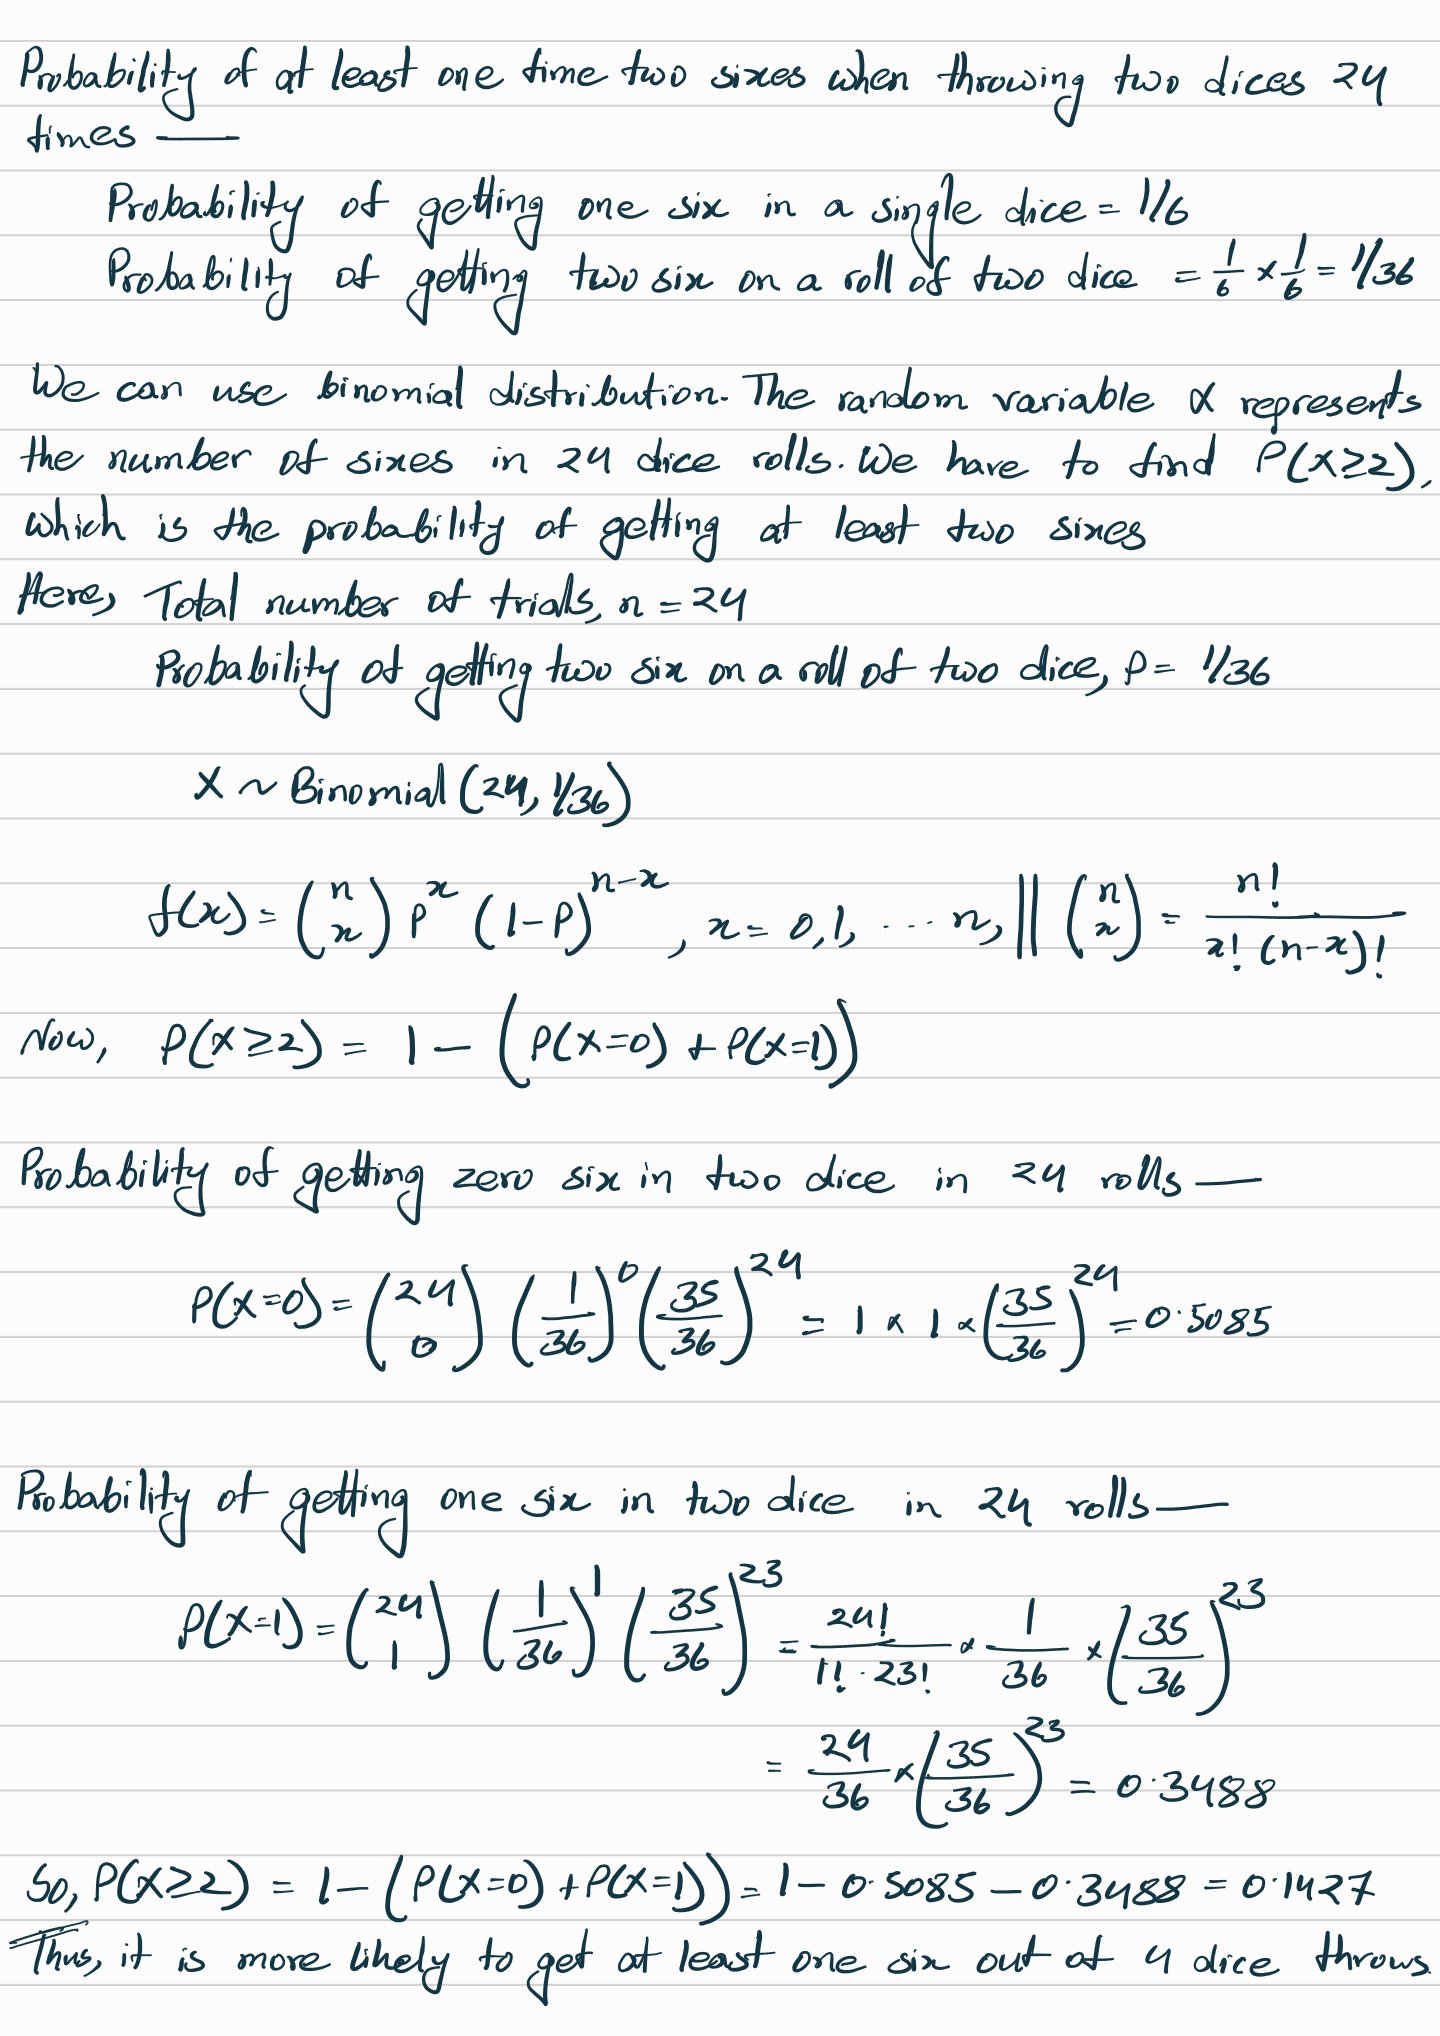 Probability of at least one time two sixes when throwing two dices 24
times —
Probability of getting one six in a single dice = 1/6
Probability of getting two six on a roll of two dice = 1/6 × 1/6 = 1/36
We can use binomial distribution. The random variable X represents
the number of sixes in 24 dice rolls. We have to find P(X≥2),
which is the probability of getting at least two sixes
Here, Total number of trials, n = 24
Probability of getting two six on a roll of two dice, P = 1/36
X ~ Binomial (24, 1/36)
f(x) = (n x) p^x (1-P)^(n-x), x = 0,1, ... n, || (n x) = n! / x! (n-x)!
Now, P(X≥2) = 1 - (P(X=0) + P(X=1))
Probability of getting zero six in two dice in 24 rolls —
P(X=0) = (24 0) (1/36)^0 (35/36)^24 = 1 × 1 × (35/36)^24 = 0.5085
Probability of getting one six in two dice in 24 rolls —
P(X=1) = (24 1) (1/36)^1 (35/36)^23 = 24! / 1! · 23! × 1/36 × (35/36)^23
= 24/36 × (35/36)^23 = 0.3488
So, P(X≥2) = 1 - (P(X=0) + P(X=1)) = 1 - 0.5085 - 0.3488 = 0.1427
Thus, it is more likely to get at least one six out of 4 dice throws